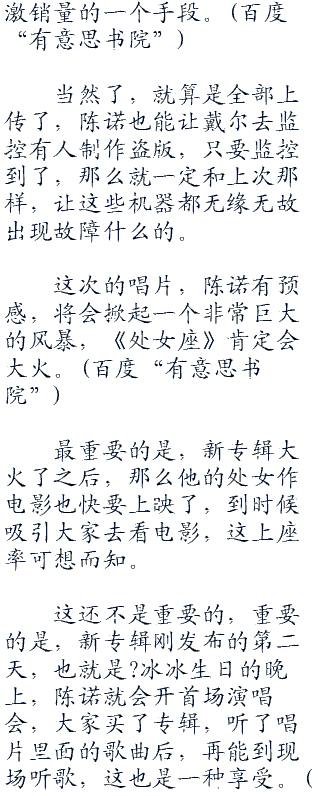 激销量的一个手段。(百度
“有意思书院”)
当然了，就算是全部上
传了，陈诺也能让戴尔去监
控有人制作盗版，只要监控
到了，那么就一定和上次那
样，让这些机器都无缘无故
出现故障什么的。
这次的唱片，陈诺有预
感，将会掀起一个非常巨大
的风暴，《处女座》肯定会
大火。(百度“有意思书
院”)
最重要的是，新专辑大
火了之后，那么他的处女作
电影也快要上映了，到时候
吸引大家去看电影，这上座
率可想而知。
这还不是重要的，重要
的是，新专辑刚发布的第二
天，也就是?冰冰生日的晚
上，陈诺就会开首场演唱
会，大家买了专辑，听了唱
片里面的歌曲后，再能到现
场听歌，这也是一种享受。(